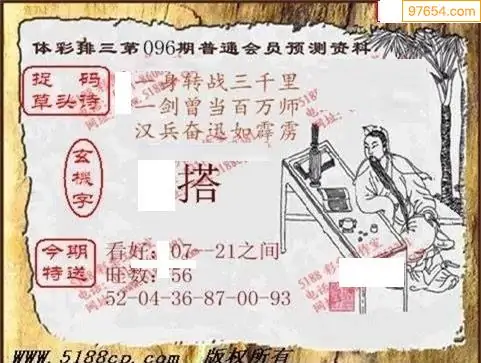 97654.com
体彩排三第096期普通会员预测资料
捉码
草头诗
身转战三千里
一剑曾当百万师
汉兵奋迅如霹雳
玄機字
搭
今期
特送
看好:07--21之间
旺数:56
52-04-36-87-00-93
www.5188cp.com 版权所有